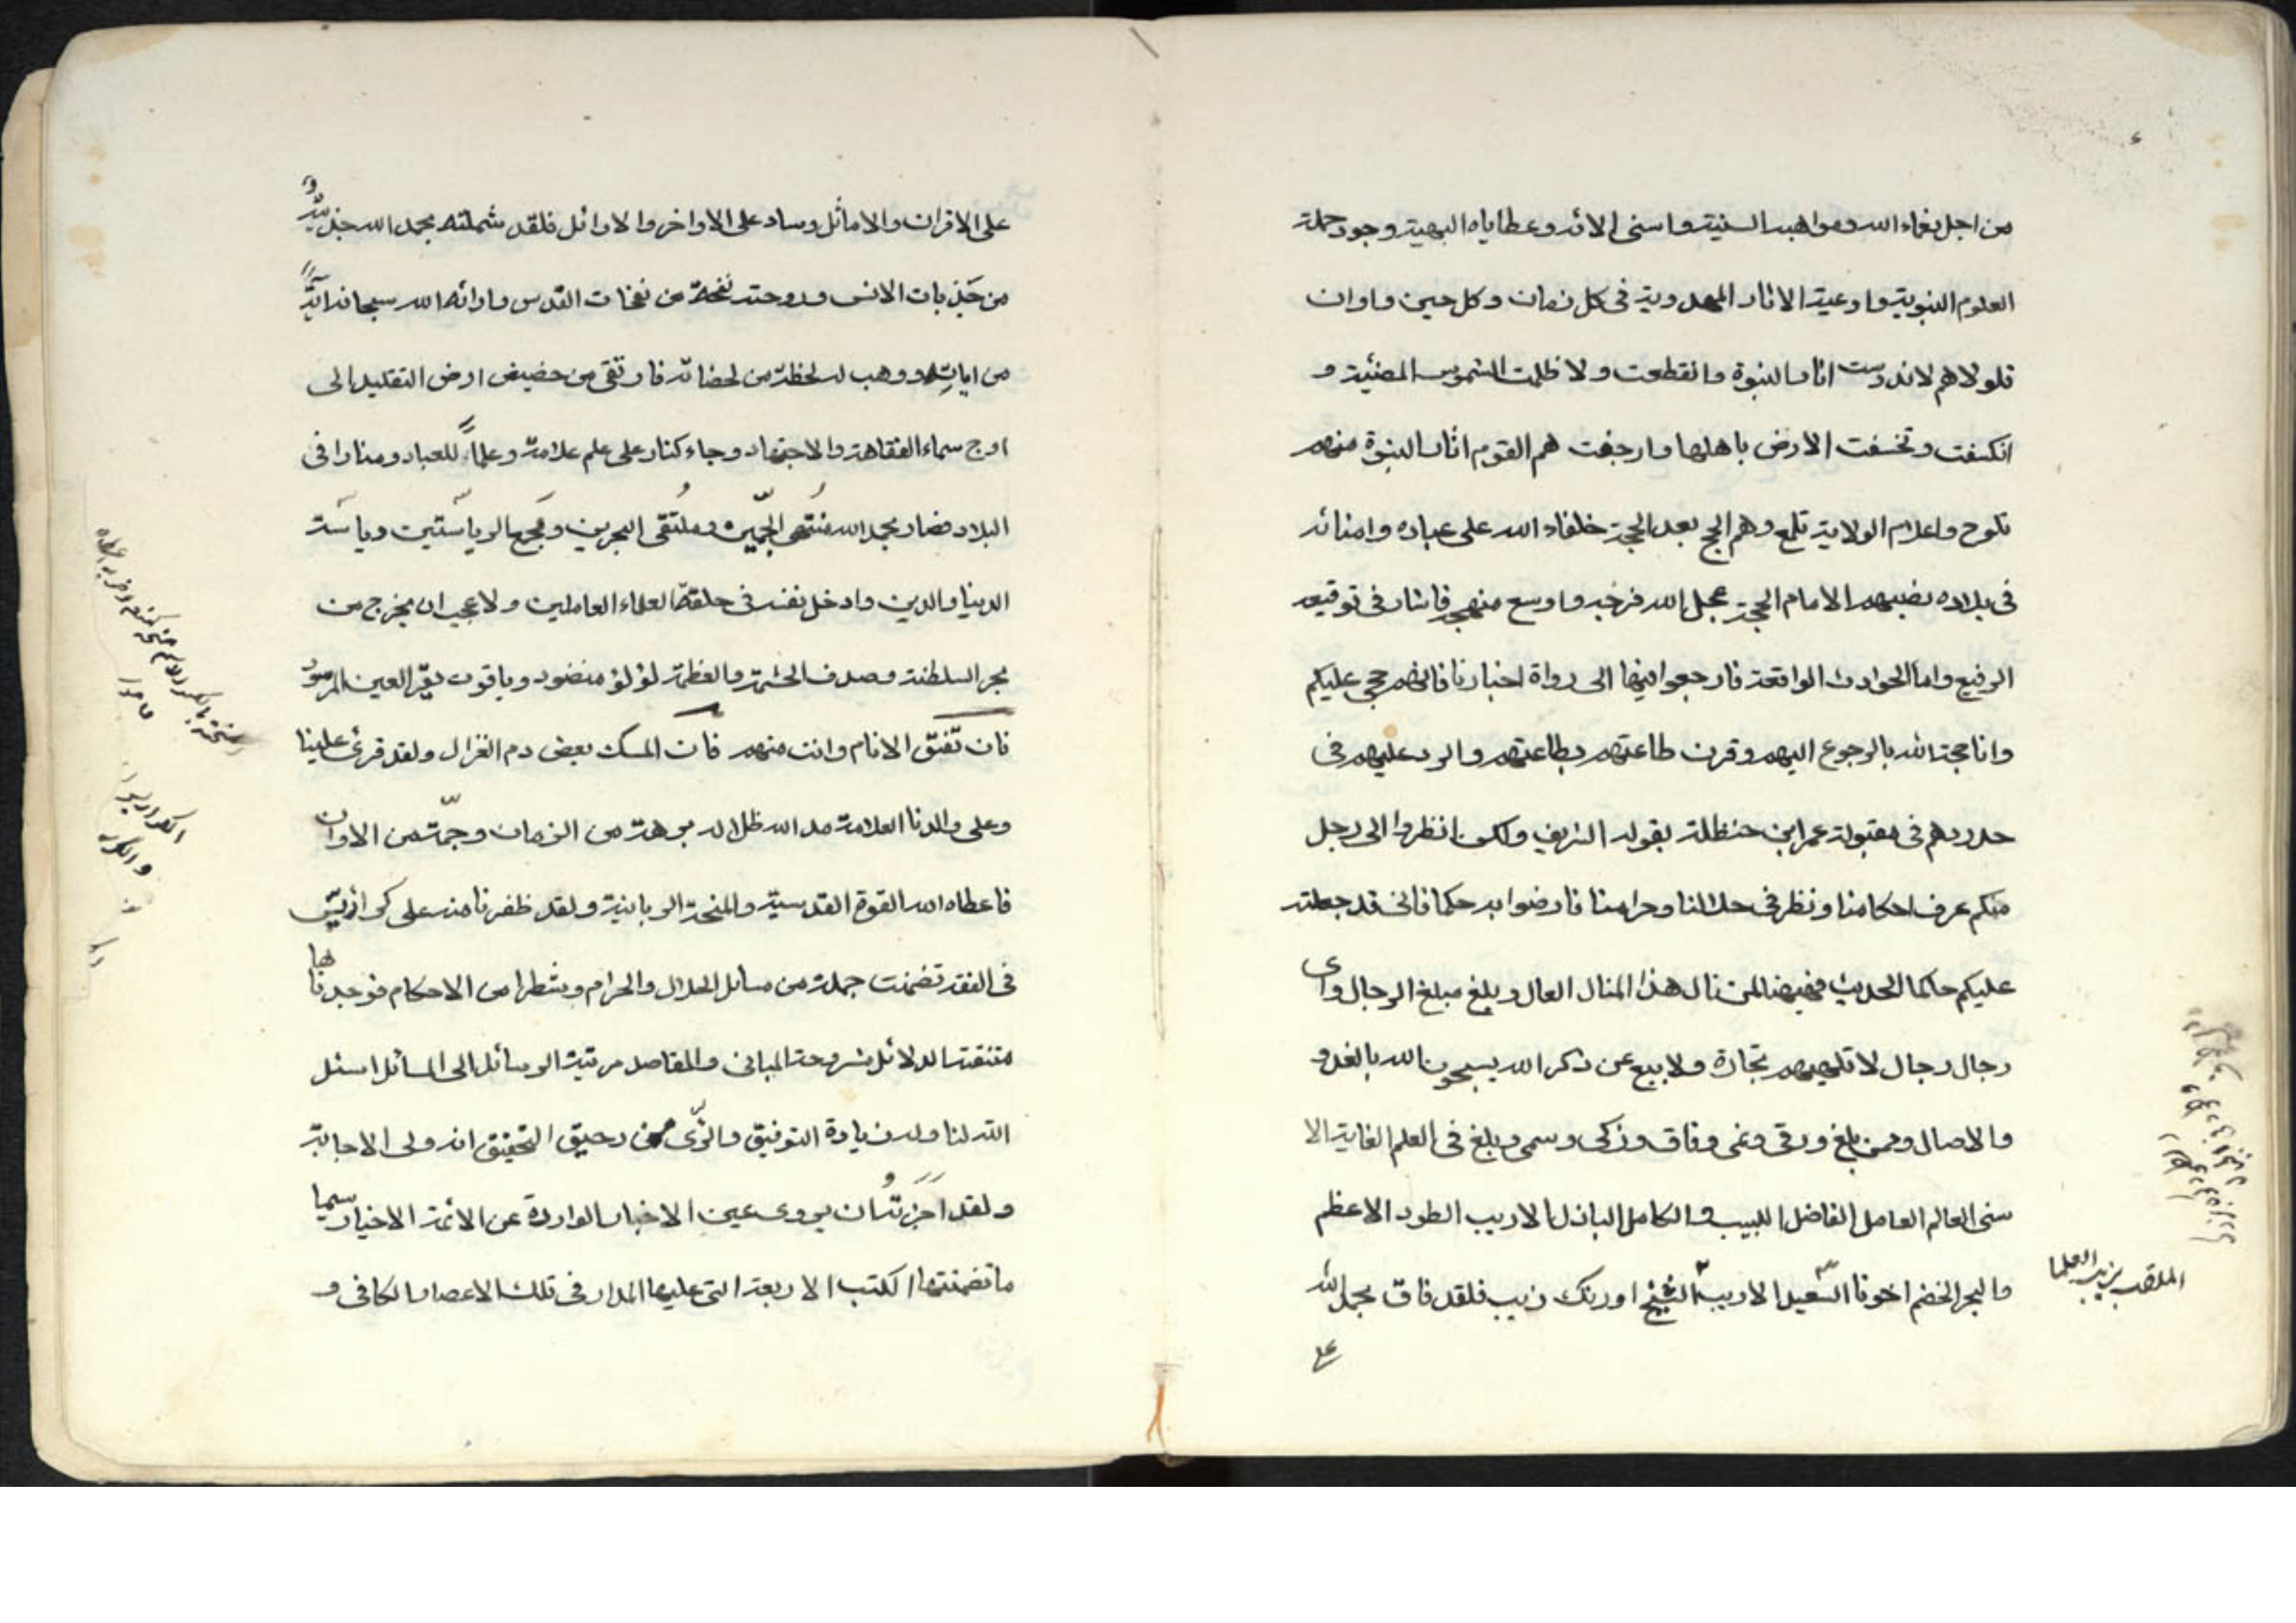 من اجل نعماء الله ومواهبه السنية واسنى الائه وعطاياه البهية وجود حملة
العلوم النبوية واوعية الاثار المهدوية فى كل زمان وكل حين واوان
فلولاهم لاندرست اثار النبوة وانقطعت ولاظلمت الشموس المضيئة و
انكسفت وتخسفت الارض باهلها وارجفت هم القوم اثار النبوة منهم
تلوح واعلام الولاية تلمع وهم الحجج بعد الحجة خلفاء الله على عباده وامنائه
فى بلاده نصبهم الامام الحجة عجل الله فرجه واوسع منهجه فاشار فى توقيعه
الرفيع واما الحوادث الواقعة فارجعوا فيها الى رواة اخبارنا فانهم حجتى عليكم
وانا حجة الله بالرجوع اليهم وقرن طاعتهم بطاعتهم والرد عليهم فى
حد ردهم فى مقبولة عمر ابن حنظلة بقوله الشريف ولكن انظروا الى رجل
منكم عرف احكامنا ونظر فى حلالنا وحرامنا فارضوا به حكما فانى قد جعلته
عليكم حاكما الحديث فهنيئا لمن نال هذا المنال العال وبلغ مبلغ الرجال واى
رجال رجال لا تلهيهم تجارة ولا بيع عن ذكر الله يسبحون الله بالغدو
والاصال وممن بلغ ورقى ونمى وفاق وزكى وسمى وبلغ فى العلم الغاية الا
سنى العالم العامل الفاضل اللبيب والكامل الباذل الاريب الطود الاعظم
والبحر الخضم اخونا السعيد الاريب الشيخ اورنك زيب فلقد فاق بحمد الله
الملقب بزين العلما
على
على الاقران والاماثل وساد على الاواخر والاوائل فلقد شملته بحمد الله جذبة
من جذبات الانس وروحته نفحة من نفحات القدس واراته الله سبحانه آية
من اياته ووهب له لحظة من لحضاته فارتقى من حضيض ارض التقليد الى
اوج سماء الفقاهة والاجتهاد وجاء كنار على علم علامة وعلما للعباد ومنارا فى
البلاد فصار بحمد الله منتهى وملتقى البحرين ومجمع الرياستين ورياسة
الدنيا والدين وادخل نفسه فى حلقة العلماء العاملين ولا عجب ان يخرج من
بحر السلطنة وصدف الحشمة والعظمة لؤلؤ منضود وياقوت يقر العين المرمود
فان تفق الانام وانت منهم فان المسك بعض دم الغزال ولقد قرئ علينا
وعلى والدنا العلامة مد الله ظلاله برهة من الزمان وجمة من الاوان
فاعطاه الله القوة القدسية والمنحة الربانية ولقد ظفرنا منه على كراريس
فى الفقه تضمنت جملة من مسائل الحلال والحرام وشطرا من الاحكام فوجدناها
متقنة الدلائل مشروحة المبانى والمقاصد مرتبة الوسائل الى المسائل اسئل
الله لنا وله زيادة التوفيق والرى من رحيق التحقيق انه ولى الاجابة
ولقد اجزته ان يروى عين الاخبار الواردة عن الائمة الاخيار سيما
ما تضمنتها الكتب الاربعة التى عليها المدار فى تلك الاعصار الكافى و